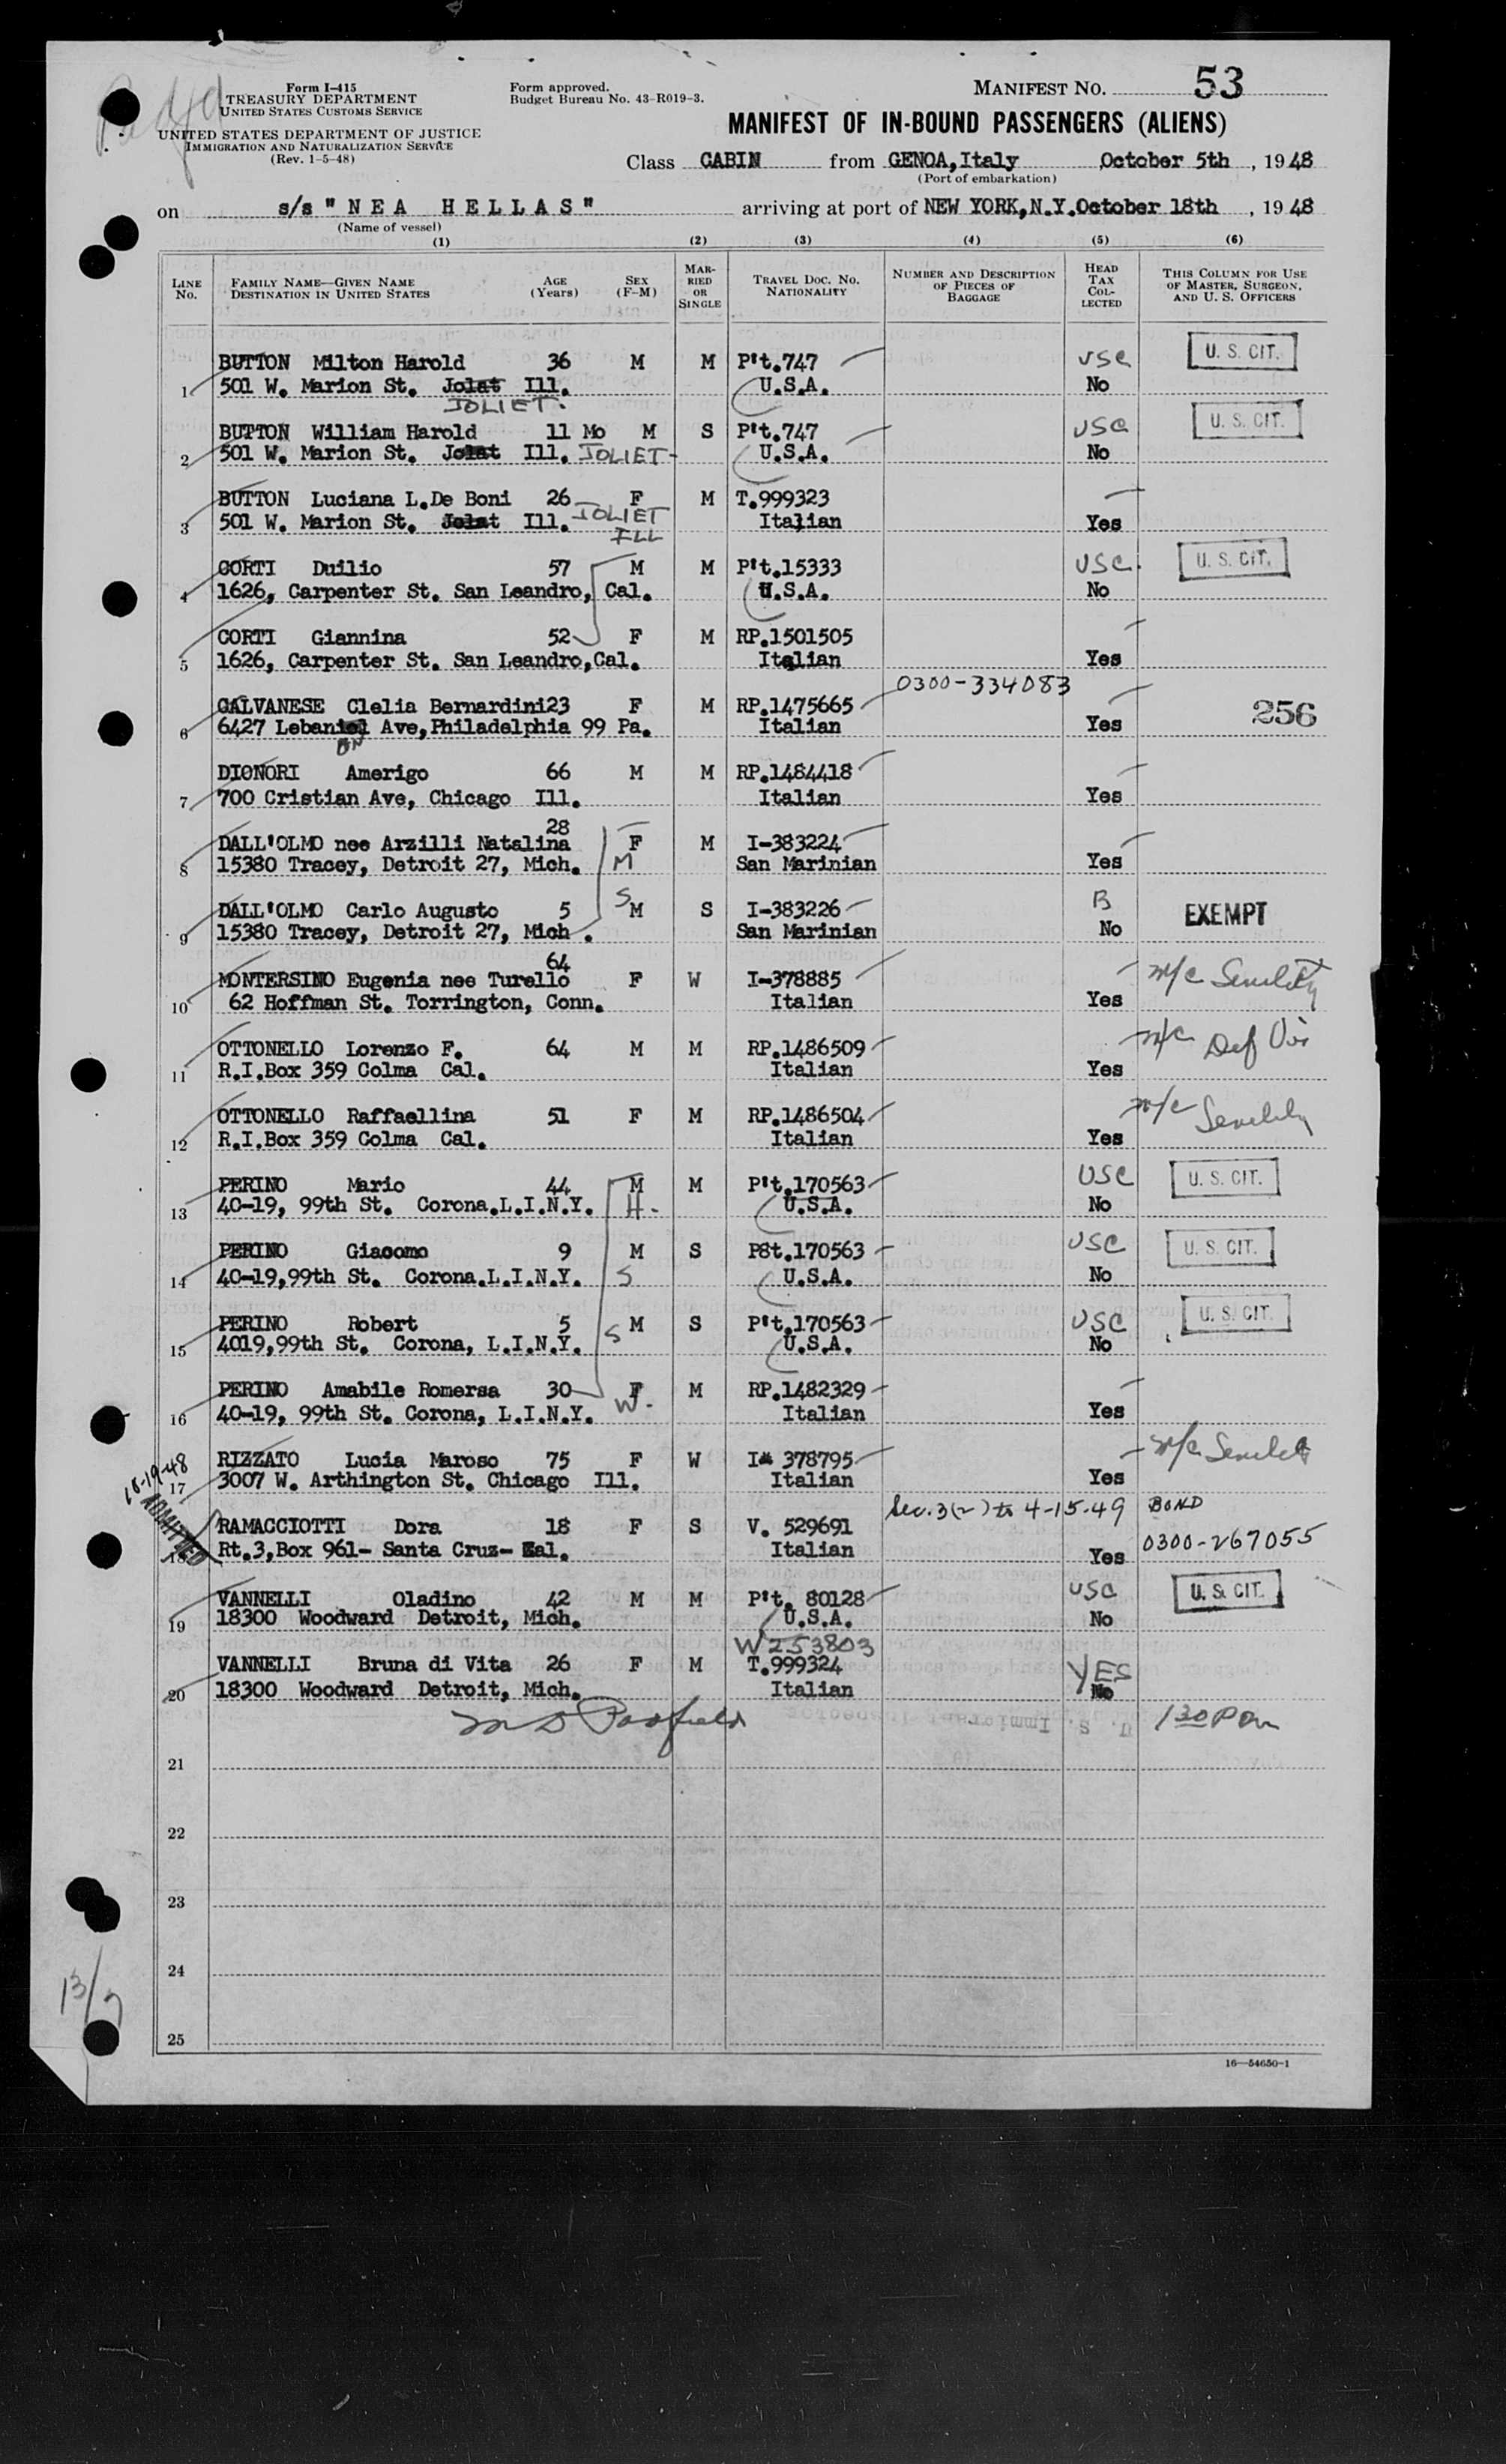 Form I-415
TREASURY DEPARTMENT
UNITED STATES CUSTOMS SERVICE
UNITED STATES DEPARTMENT OF JUSTICE
IMMIGRATION AND NATURALIZATION SERVICE
(Rev. 1-5-48)
Form approved.
Budget Bureau No. 43-R019-3.
MANIFEST NO. 53
MANIFEST OF IN-BOUND PASSENGERS (ALIENS)
Class CABIN from GENOA,Italy October 5th, 1948
(Port of embarkation)
on s/s "NEA HELLAS" arriving at port of NEW YORK,N.Y.October 18th, 1948
(Name of vessel)
(1) (2) (3) (4) (5) (6)
LINE No. FAMILY NAME—GIVEN NAME DESTINATION IN UNITED STATES AGE (Years) SEX (F-M) MARRIED OR SINGLE TRAVEL DOC. NO. NATIONALITY NUMBER AND DESCRIPTION OF PIECES OF BAGGAGE HEAD TAX COLLECTED THIS COLUMN FOR USE OF MASTER, SURGEON, AND U. S. OFFICERS
BUTTON Milton Harold 36 M M P't.747 USC U. S. CIT.
1 501 W. Marion St. Jolat Ill. U.S.A. No
JOLIET.
BUTTON William Harold 11 Mo M S P't.747 USC U. S. CIT.
2 501 W. Marion St. Jolat Ill. JOLIET U.S.A. No
BUTTON Luciana L.De Boni 26 F M T.999323
3 501 W. Marion St. Jolat Ill. JOLIET Italian Yes
ILL
CORTI Duilio 57 M M P't.15333 USC U. S. CIT.
4 1626, Carpenter St. San Leandro, Cal. U.S.A. No
CORTI Giannina 52 F M RP.1501505
5 1626, Carpenter St. San Leandro,Cal. Italian Yes
0300-334083
GALVANESE Clelia Bernardini 23 F M RP.1475665 256
6 6427 Lebaniel Ave,Philadelphia 99 Pa. Italian Yes
ON
DIONORI Amerigo 66 M M RP.1484418
7 700 Cristian Ave, Chicago Ill. Italian Yes
28
DALL'OLMO nee Arzilli Natalina F M I-383224
8 15380 Tracey, Detroit 27, Mich. M San Marinian Yes
DALL'OLMO Carlo Augusto 5 S M S I-383226 B EXEMPT
9 15380 Tracey, Detroit 27, Mich. San Marinian No
64
MONTERSINO Eugenia nee Turello F W I-378885 m/c Senility
10 62 Hoffman St. Torrington, Conn. Italian Yes
OTTONELLO Lorenzo F. 64 M M RP.1486509 m/c Def Vis
11 R.I.Box 359 Colma Cal. Italian Yes
OTTONELLO Raffaellina 51 F M RP.1486504 m/c Senility
12 R.I.Box 359 Colma Cal. Italian Yes
PERINO Mario 44 M M P't.170563 USC U. S. CIT.
13 40-19, 99th St. Corona.L.I.N.Y. H- U.S.A. No
PERINO Giacomo 9 M S P8t.170563 USC U. S. CIT.
14 40-19,99th St. Corona.L.I.N.Y. S U.S.A. No
PERINO Robert 5 M S P't.170563 USC U. S. CIT.
15 4019,99th St. Corona, L.I.N.Y. S U.S.A. No
PERINO Amabile Romersa 30 F M RP.1482329
16 40-19, 99th St. Corona, L.I.N.Y. W- Italian Yes
RIZZATO Lucia Maroso 75 F W I 378795 m/c Senility
17 3007 W. Arthington St. Chicago Ill. Italian Yes
10-19-48
ADMITTED
Sec. 3(2) to 4-15-49 BOND
RAMACCIOTTI Dora 18 F S V. 529691
18 Rt.3,Box 961- Santa Cruz- Cal. Italian Yes 0300-267055
VANNELLI Oladino 42 M M P't. 80128 USC U. S. CIT.
19 18300 Woodward Detroit, Mich. U.S.A. No
W253803
VANNELLI Bruna di Vita 26 F M T.999324 YES
20 18300 Woodward Detroit, Mich. Italian No
130 Pm
21
22
23
24
25
13/7
16—54650-1